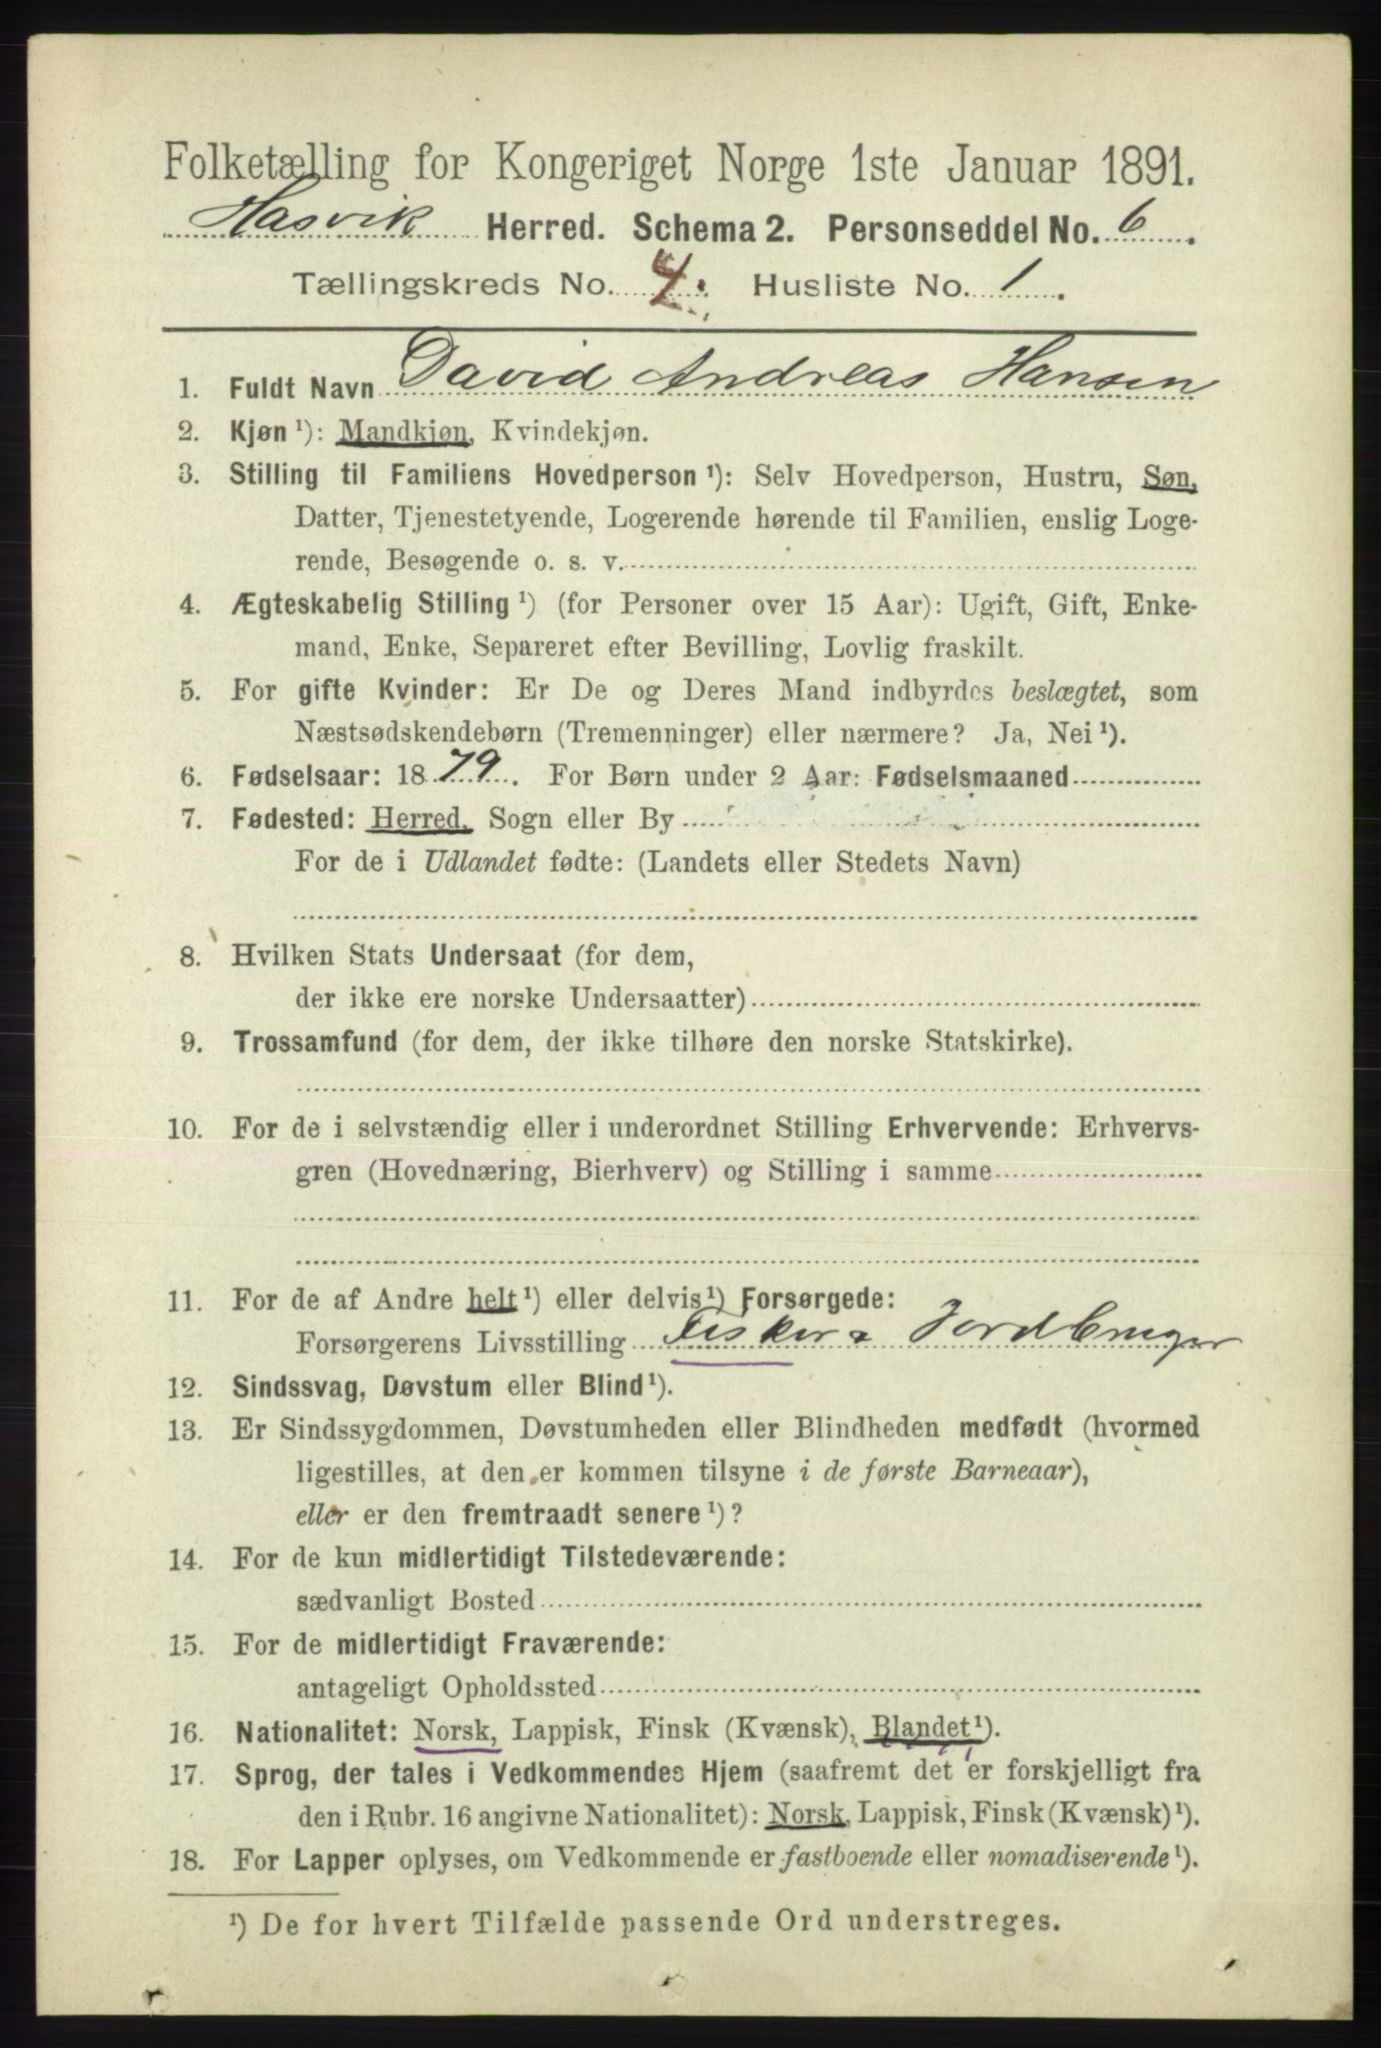 Folketælling for Kongeriget Norge 1ste Januar 1891.
Hasvik Herred. Schema 2. Personseddel No. 6.
Tællingskreds No. 4. Husliste No. 1.
1. Fuldt Navn David Andreas Hansen
2. Kjøn ¹): Mandkjøn, Kvindekjøn.
3. Stilling til Familiens Hovedperson ¹): Selv Hovedperson, Hustru, Søn,
Datter, Tjenestetyende, Logerende hørende til Familien, enslig Loge-
rende, Besøgende o. s. v.
4. Ægteskabelig Stilling ¹) (for Personer over 15 Aar): Ugift, Gift, Enke-
mand, Enke, Separeret efter Bevilling, Lovlig fraskilt.
5. For gifte Kvinder: Er De og Deres Mand indbyrdes beslægtet, som
Næstsødskendebørn (Tremenninger) eller nærmere? Ja, Nei ¹).
6. Fødselsaar: 1879. For Børn under 2 Aar: Fødselsmaaned
7. Fødested: Herred, Sogn eller By
For de i Udlandet fødte: (Landets eller Stedets Navn)
8. Hvilken Stats Undersaat (for dem,
der ikke ere norske Undersaatter)
9. Trossamfund (for dem, der ikke tilhøre den norske Statskirke).
10. For de i selvstændig eller i underordnet Stilling Erhvervende: Erhvervs-
gren (Hovednæring, Bierhverv) og Stilling i samme
11. For de af Andre helt ¹) eller delvis ¹) Forsørgede:
Forsørgerens Livsstilling Fisker & Jordbruger
12. Sindssvag, Døvstum eller Blind ¹).
13. Er Sindssygdommen, Døvstumheden eller Blindheden medfødt (hvormed
ligestilles, at den er kommen tilsyne i de første Barneaar),
eller er den fremtraadt senere ¹)?
14. For de kun midlertidigt Tilstedeværende:
sædvanligt Bosted
15. For de midlertidigt Fraværende:
antageligt Opholdssted
16. Nationalitet: Norsk, Lappisk, Finsk (Kvænsk), Blandet ¹).
17. Sprog, der tales i Vedkommendes Hjem (saafremt det er forskjelligt fra
den i Rubr. 16 angivne Nationalitet): Norsk, Lappisk, Finsk (Kvænsk) ¹).
18. For Lapper oplyses, om Vedkommende er fastboende eller nomadiserende ¹).
¹) De for hvert Tilfælde passende Ord understreges.